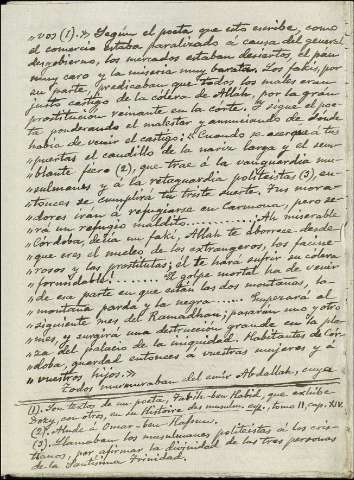 "vos (1).» Segun el poeta que esto escribe, como
el comercio estaba paralizado á causa del general
desgobierno, los mercados estaban desiertos, el pan
muy caro y la miseria muy barata. Los fakís, por
su parte, predicaban que todos los males eran
justo castigo de la cólera de Allah, por la gran
prostitucion reinante en la corte. Y sigue el poe-
ta ponderando el malestar y anunciando de donde
habia de venir el castigo: «Cuando se acerque á tus
"puertas el caudillo de la nariz larga y el sem-
"blante fiero (2), que trae á la vanguardia mu-
"sulmanes y á la retaguardia politeistas (3), en-
"tonces se cumplirá tu triste suerte. Tus mora-
"dores irán á refugiarse en Carmona, pero se-
"rá un refugio maldito.......... ¡Ah miserable
"Córdoba, decia un fakí, Allah te aborrece desde
"que eres el nucleo de los extrangeros, los facine-
"rosos y las prostitutas; él te hará sufrir su cólera
"formidable!.......... El golpe mortal ha de venir
"de esa parte en que están las dos montañas, la
"montaña parda y la negra....... Imperará al
"siguiente mes del Ramadhan; pasarán uno y otro
"mes, y surgirá una destruccion grande en la pla-
"za del palacio de la iniquidad. Habitantes de Cór-
"doba, guardad entonces á vuestras mujeres y á
"vuestros hijos.»
Todos murmuraban del emir Abdallah, cuya
(1). Son textos de un poeta, ben Habid, que exhibe
Dozy, con otros, en su Histoire des musulm. esp., tomo II, cap. XIV.
(2). Alude á Omar-ben Hafsun.
(3). Llamaban los musulmanes politeistas á los cris-
tianos, por afirmar la divinidad de las tres personas
de la Santísima Trinidad.